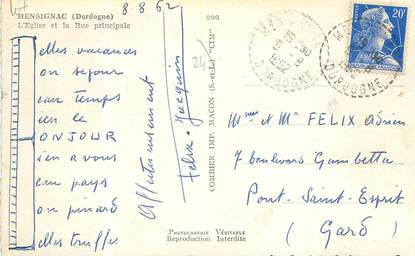 MENSIGNAC (Dordogne)
L'Eglise et la Rue principale
8 8 62
elles vacances
on sejour
eau temps
ien le
ONJOUR
ien a vous
eau pays
on pinard
elles truffes
Affectueusement
Felix. Jacquin
24
COMBIER IMP. MACON (S.-et-L.) "CIM"
PHOTOGRAPHIE VÉRITABLE
Reproduction Interdite
20F
DORDOGNE
DORDOGNE
et Mr FELIX Adrien
7 boulevard Gambetta
Pont-Saint-Esprit
(Gard)